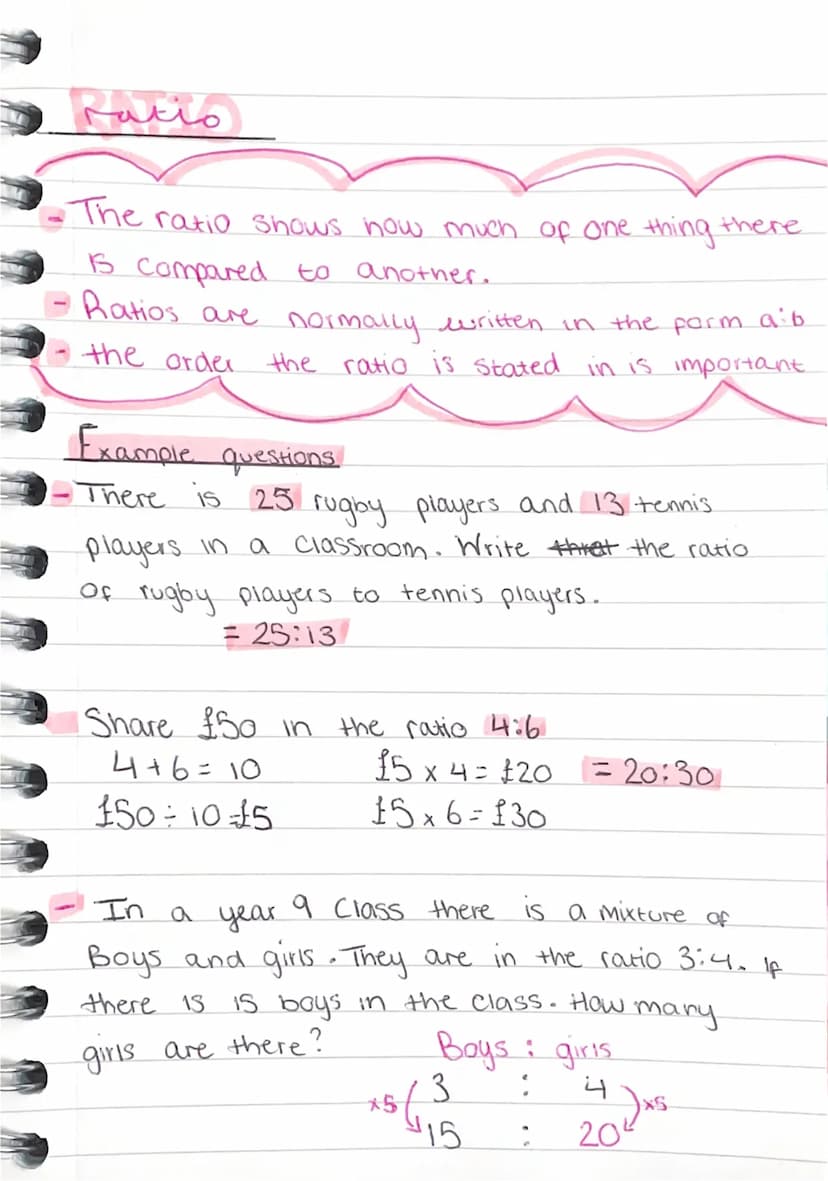 RATIO
ratio
- The ratio shows how much of one thing there
is compared to another.
- Ratios are normally written in the form a:b
- the order the ratio is stated in is important
Example questions
- There is 25 rugby players and 13 tennis
players in a classroom. Write the ratio
of rugby players to tennis players.
= 25:13
Share £50 in the ratio 4:6
4+6=10 £5 x 4 = £20 = 20:30
£50 ÷ 10 = £5 £5 x 6 = £30
- In a year 9 class there is a mixture of
Boys and girls. They are in the ratio 3:4. If
there is 15 boys in the class. How many
girls are there? Boys : girls
x5 3 : 4 x5
15 : 20